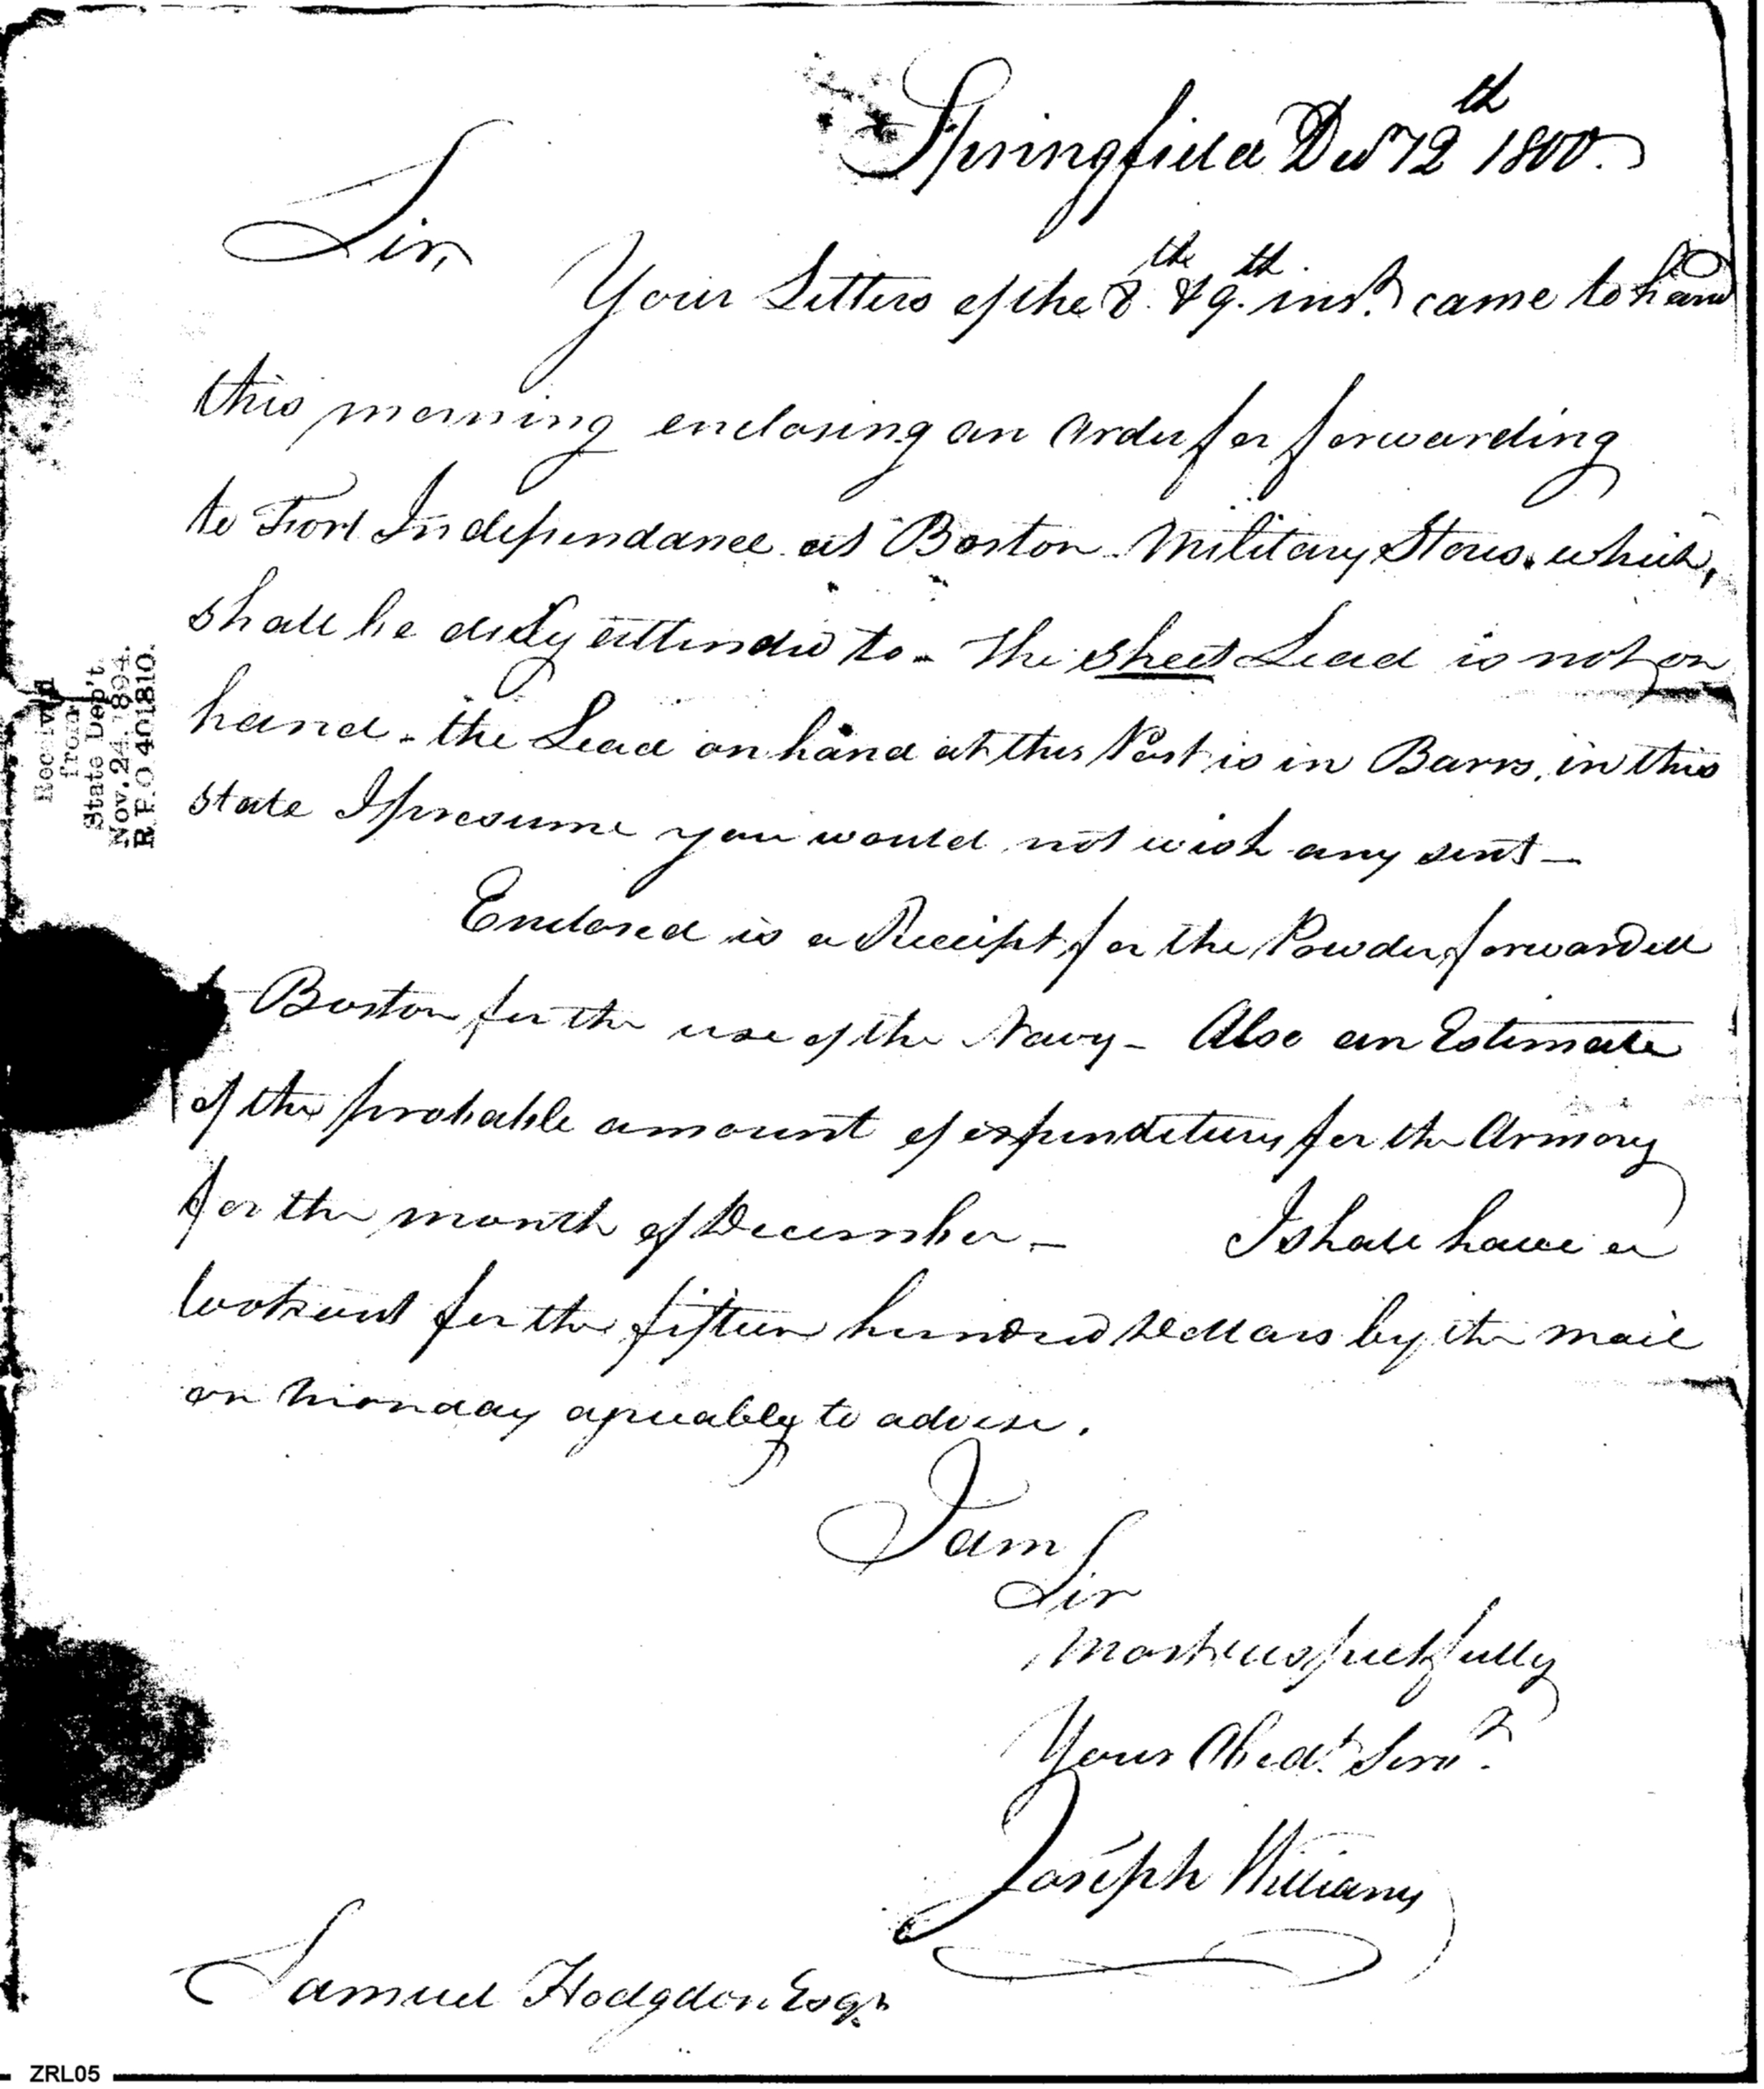 Springfield Decr 12th 1800.
Sir,
Your Letters of the 8th & 9th inst. came to hand
this morning enclosing an order for forwarding
to Fort Independance at Boston Military Stores, which,
shall be duly attended to - The sheet Lead is not on
hand - the Lead on hand at this Post is in Barrs, in this
state I presume you would not wish any sent -
Enclosed is a Receipt for the Powder forwarded
to Boston for the use of the Navy - Also an Estimate
of the probable amount of expenditures for the Armory
for the month of December - I shall have a
lookout for the fifteen hundred Dollars by the mail
on Monday agreeably to advise.
I am
Sir
Most respectfully
Your Obedt. Servt.
Joseph Williams
Samuel Hodgdon Esqr.
Received
from
State Dep't
Nov. 24. 1894.
R.P.O 401810.
ZRL05